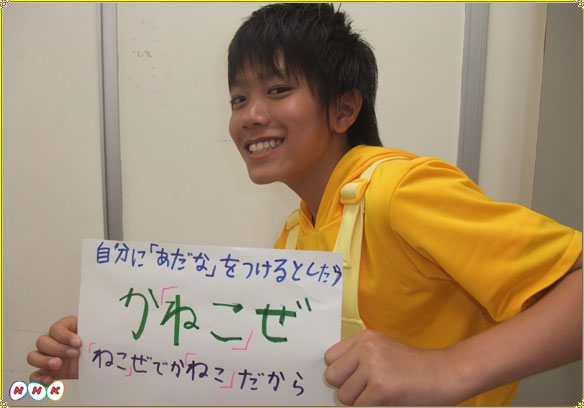 自分に「あだな」をつけるとしたら
か「ねこ」ぜ
「ねこ」ぜでか「ねこ」だから
NHK